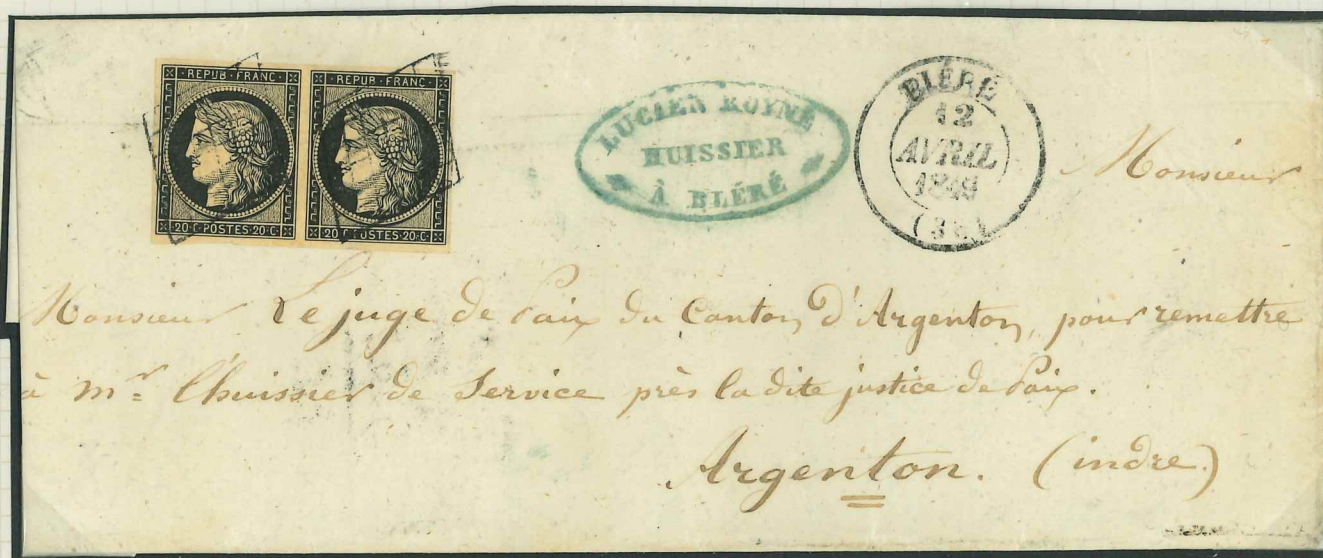 REPUB·FRANC·
20·C·POSTES·20·C·
REPUB·FRANC·
20·C·POSTES·20·C·
LUCIEN ROYNÉ
HUISSIER
À BLÉRÉ
BLÉRÉ
12
AVRIL
1849
Monsieur
Monsieur Le juge de Paix du Canton d'Argenton, pour remettre
à mr. l'huissier de Service près la dite justice de Paix.
Argenton. (indre.)